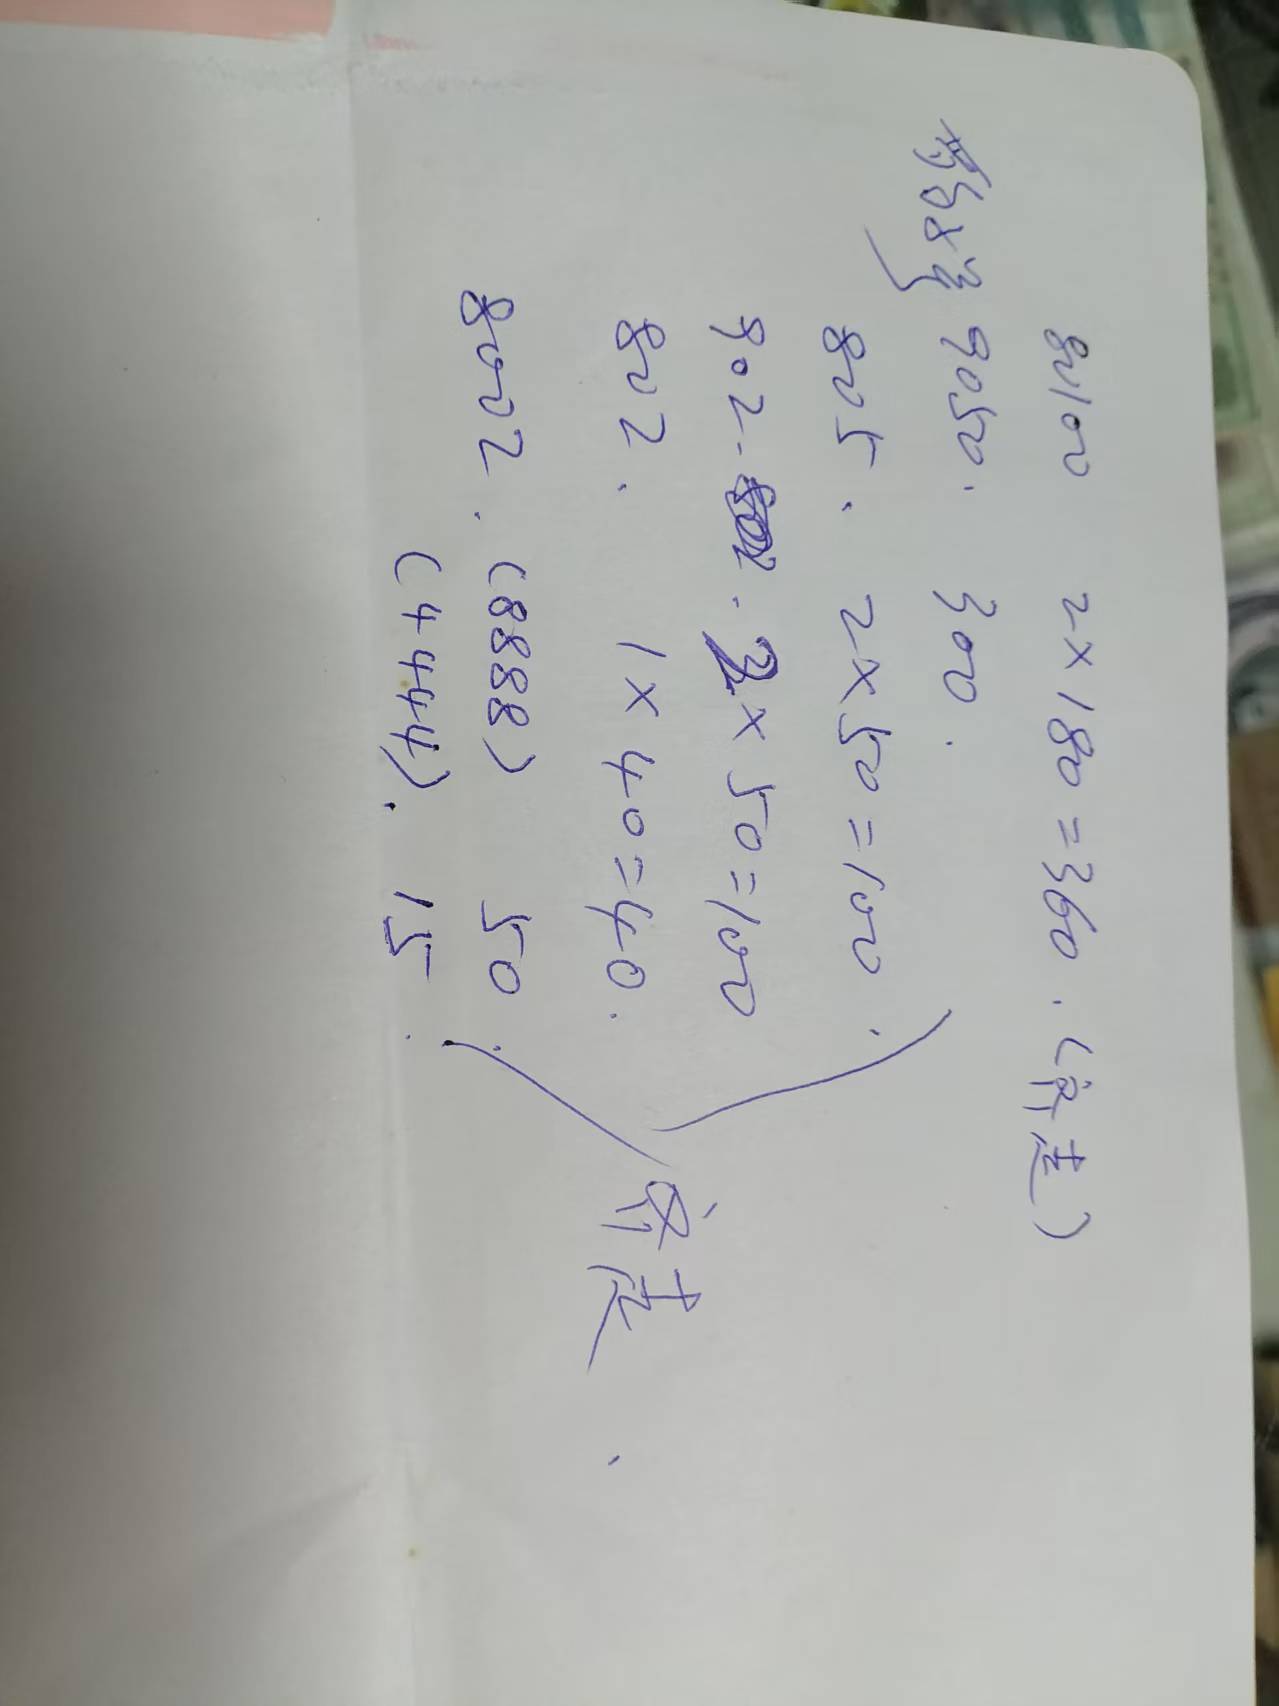 80100 2×180=360.(齐走)
9050. 300.
805. 2×50=100.
902. 2×50=100
802. 1×40=40.
8002.(8888) 50.
(4444). 15.
齐走.